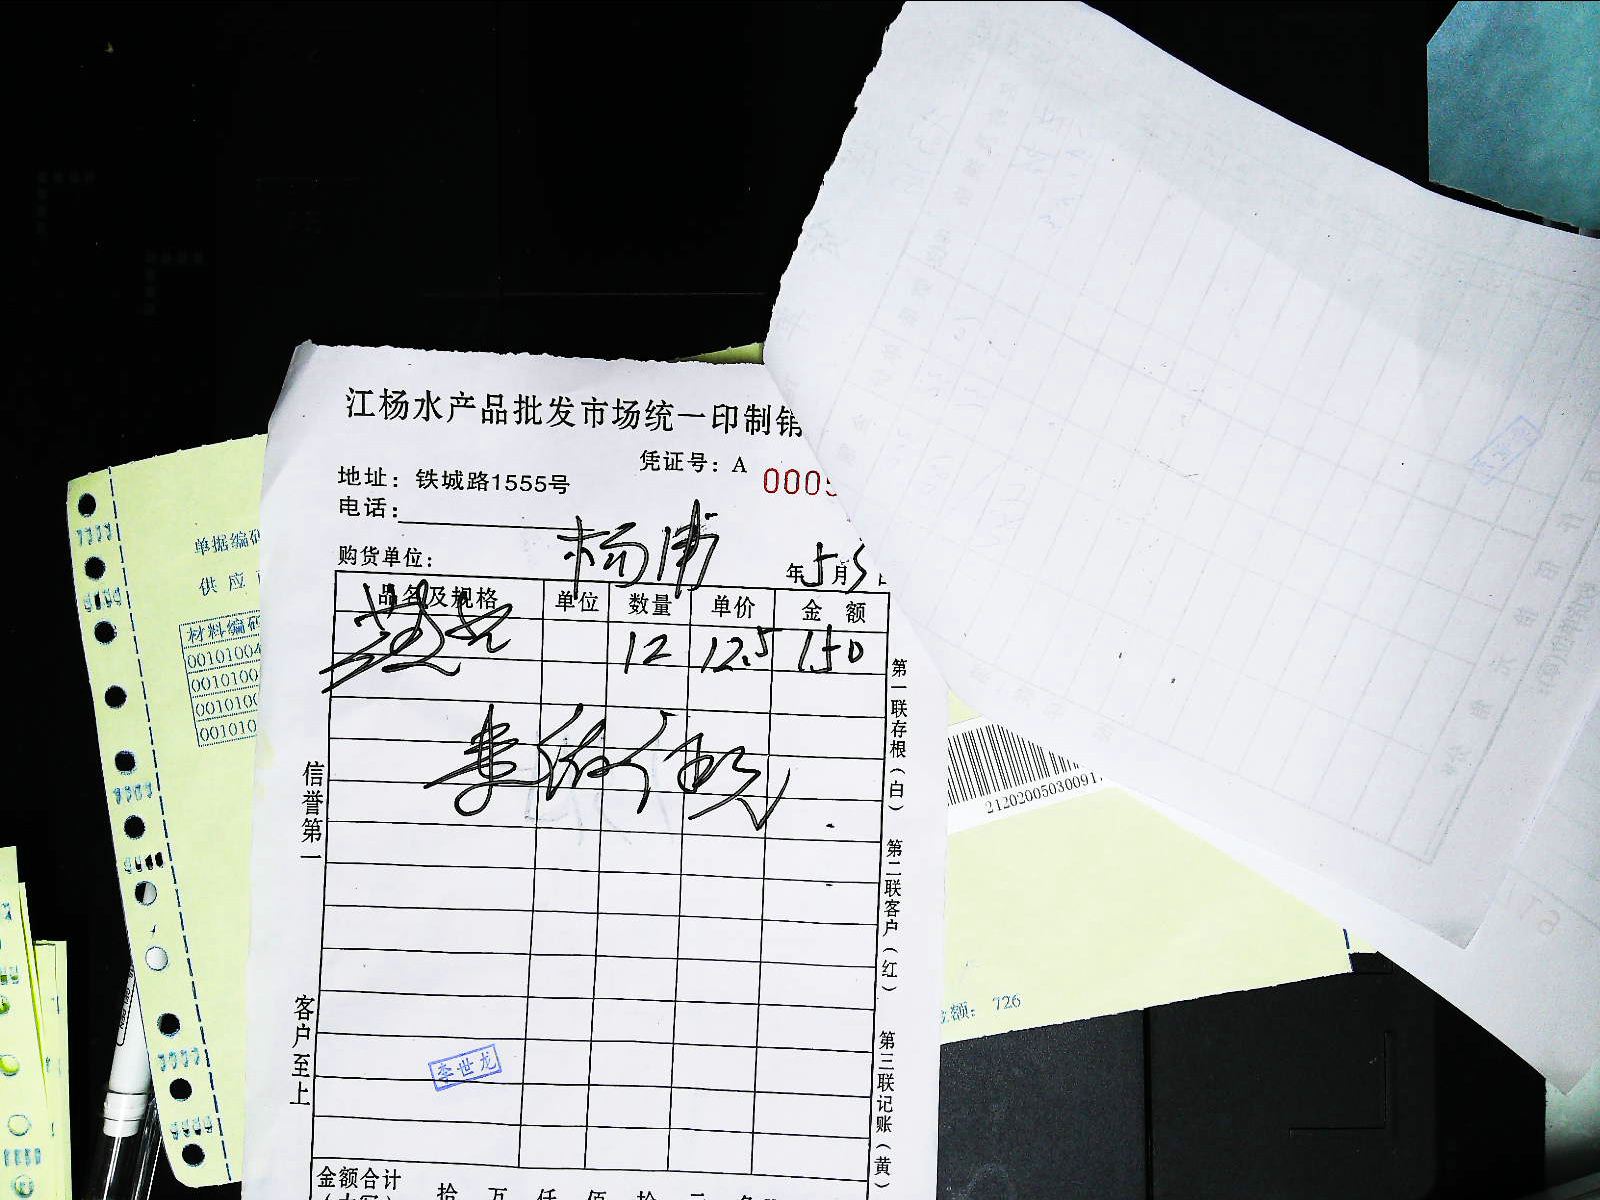 江杨水产品批发市场统一印制销
凭证号：A 0005
地址：铁城路1555号
电话：
购货单位：杨浦 年5月3日
品名及规格 单位 数量 单价 金额
12 12.5 150
信誉第一
客户至上
第一联存根（白）
第二联客户（红）
第三联记账（黄）
李世龙
金额合计
（大写） 拾 万 仟 佰 拾 元
单据编码
供应
材料编码
00101004
0010100
0010100
001010
212020050300917
金额：726